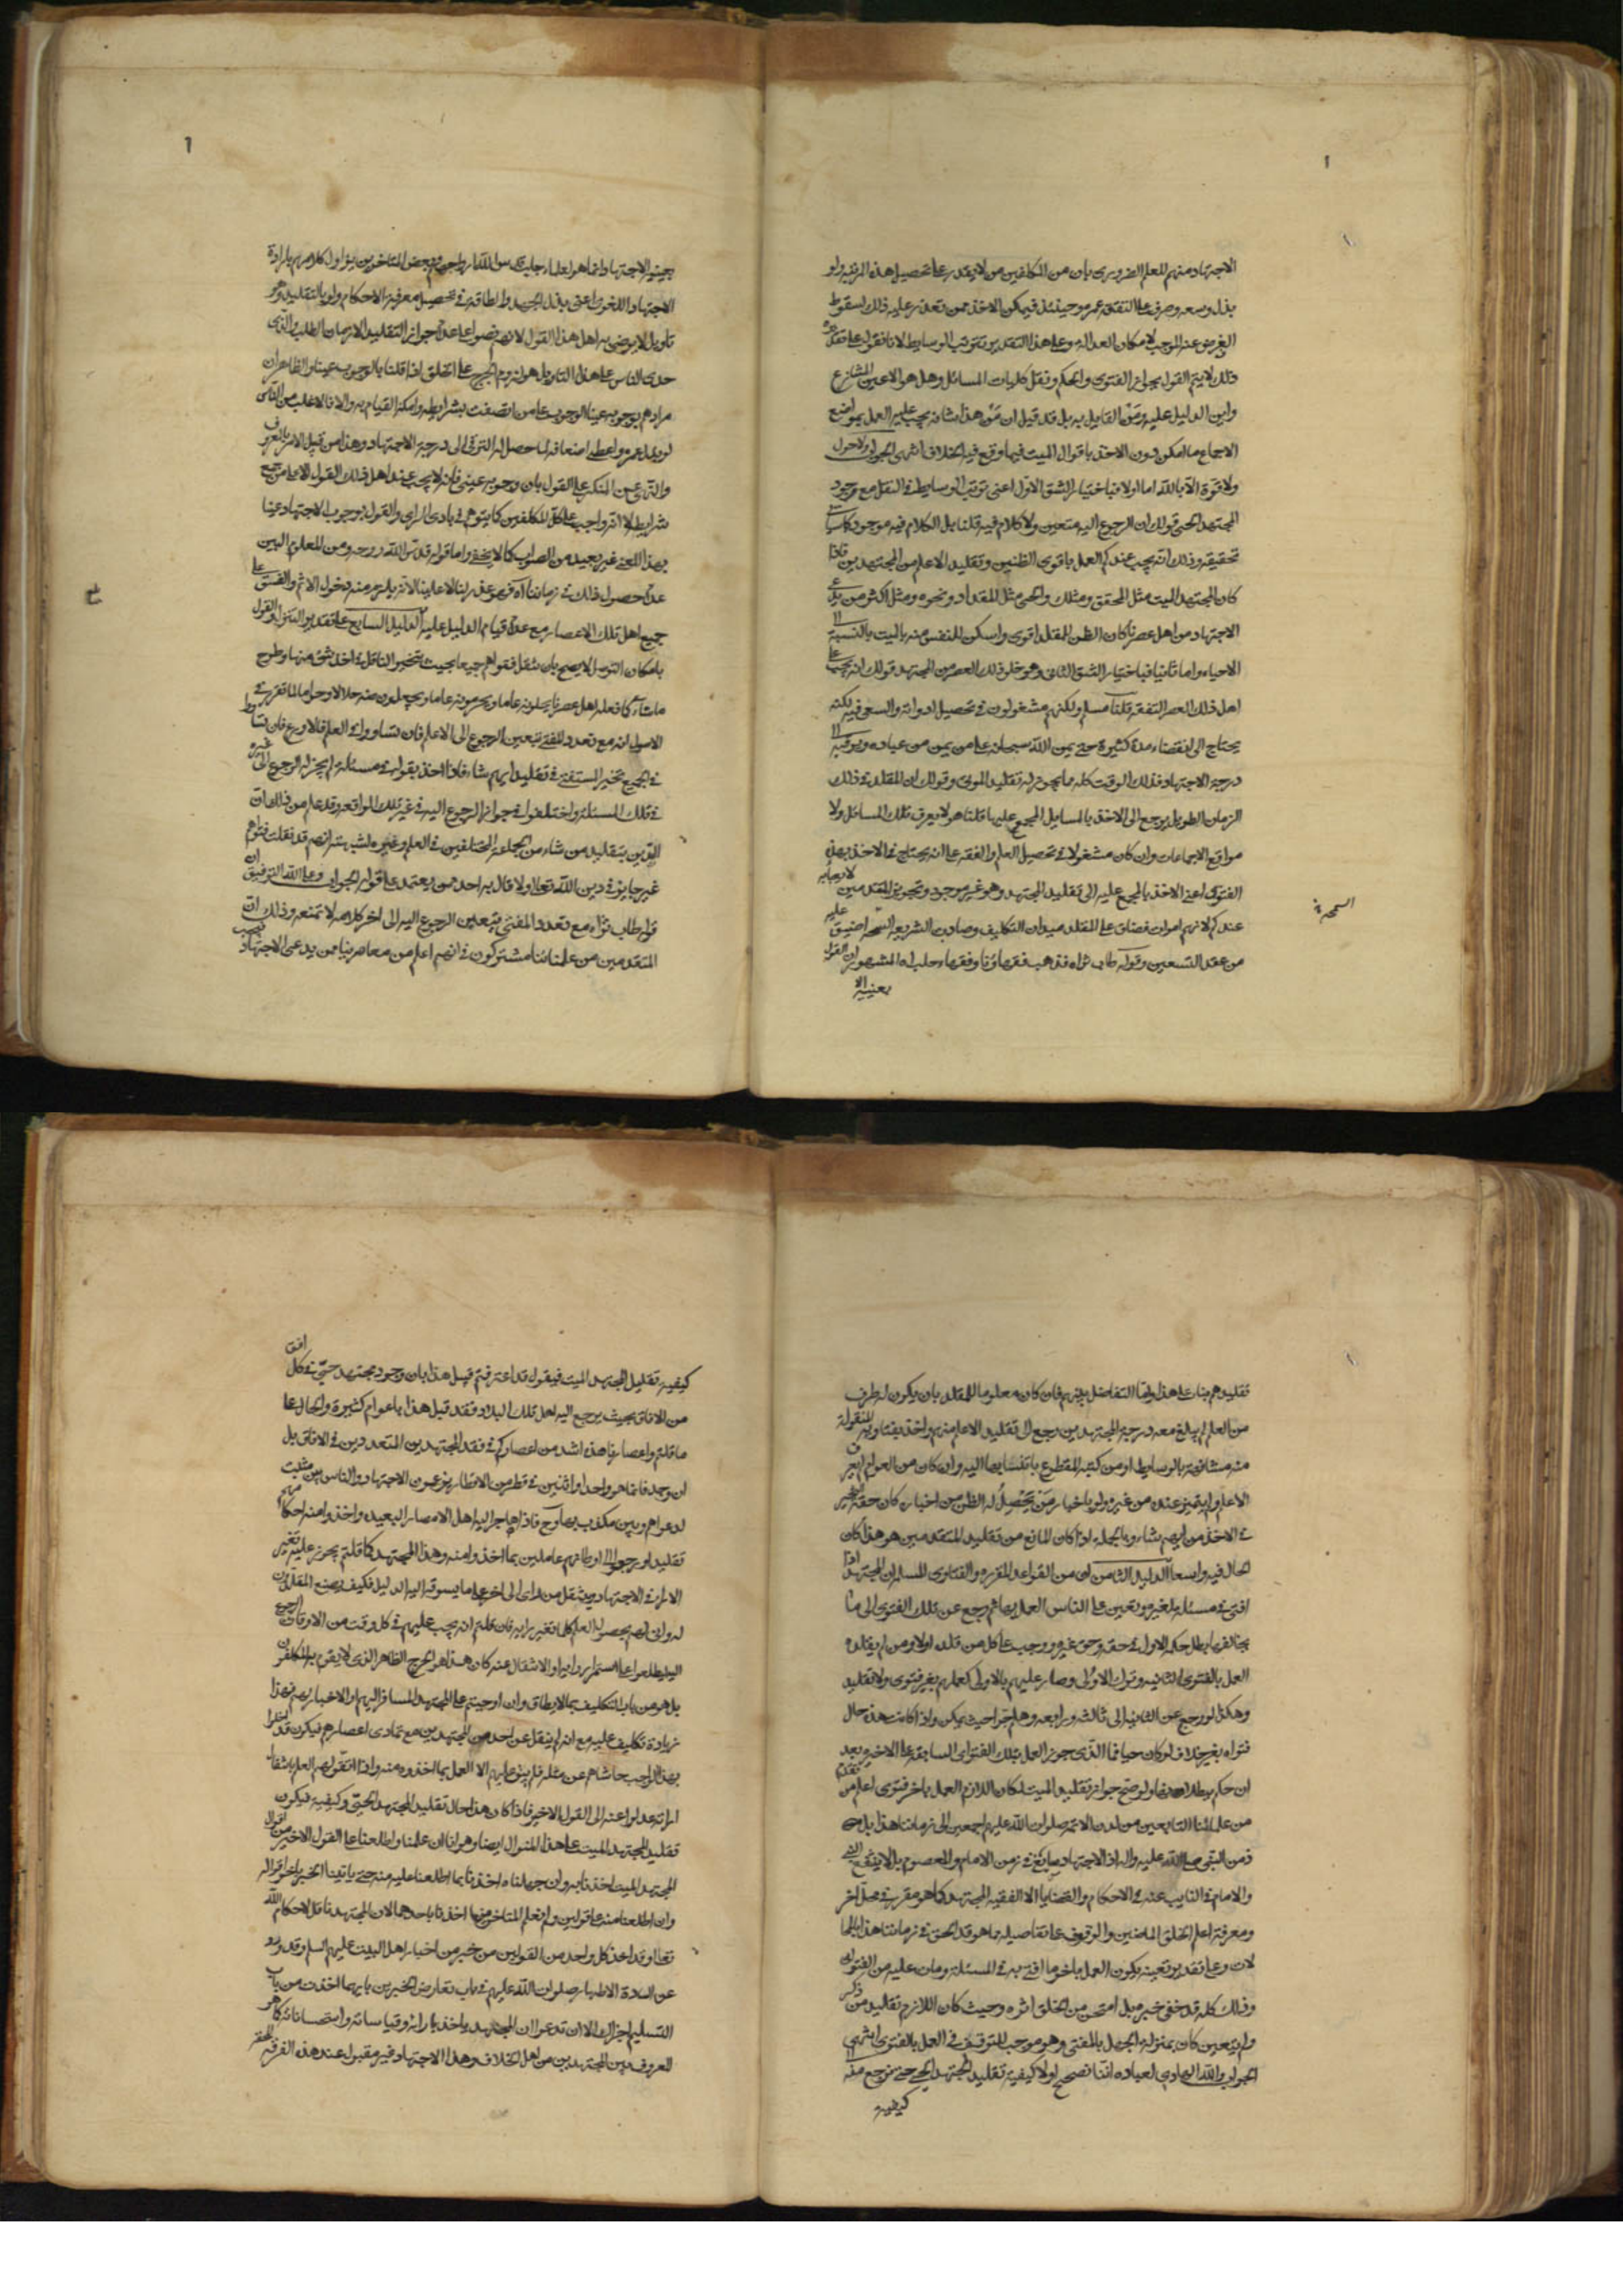 الاجتهاد منهم للعلم الضروري بان من المكلفين من لا يقدر على تحصيل هذه المرتبة ولو
بذل وسعه وصرف على التفقه عمره وحينئذ فيمكن الاخذ ممن تعذر عليه ذلك لسقوط
الغرض عنه الموجب لامكان العدالة وعلى هذا التقدير تترتب الوسايط لانا نقول على تقدير
ذلك لا يتم القول بجواز الفتوى والحكم ونقل كليات المسائل وهل هو الا عين المتنازع
واين الدليل عليه ومن القايل به بل قد قيل ان من هذا شانه يجب عليه العمل بمواضع
الاجماع ما امكن دون الاخذ باقوال الميت فيما وقع فيه الخلاف انتهى الجواب ولا حول
ولا قوة الا بالله اما اولا فباختيار الشق الاول اعنى ترتب الوسايط في النقل مع وجود
المجتهد الحي قولك ان الرجوع اليه متعين ولا كلام فيه قلنا بل الكلام فيه موجود كما سياتي
تحقيقه وذلك انه يجب عندكم العمل باقوى الظنين وتقليد الاعلم من المجتهدين فاذا
كان المجتهد الميت مثل المحقق ومثلك والحي مثل المقداد ونحوه ومثل اكثر من يدعي
الاجتهاد من اهل عصرنا كان الظن للمقلد اقوى واسكن للنفس منه بالميت بالنسبة الى
الاحياء واما ثانيا فباختيار الشق الثاني وهو خلو ذلك العصر من المجتهد قولك انه يجب على
اهل ذلك العصر التفقه قلنا مسلم ولكنهم مشغولون في تحصيل ادواته والسعي فيه لكنه
يحتاج الى انقضاء مدة كثيرة حتى يمن الله سبحانه على من يمن من عباده ويوقيه الى
درجة الاجتهاد فذلك الوقت كله ما يجوز له تقليد الموتى وقولك ان المقلد في ذلك
الزمان الطويل يرجع الى الاخذ بالمسايل المجمع عليها قلنا هو لا يعرف تلك المسائل ولا
مواقع الاجماعات وان كان مشغولا في تحصيل العلم والفقه على انه يحتاج في الاخذ بهذه
الفتوى اعنى الاخذ بالمجمع عليه الى تقليد المجتهد وهو غير موجود وتجويز المتقدمين لا رجابه
عندكم لانهم اموات فضاق على المقلد ميدان التكليف وصارت الشريعة السمحة اضيق عليه
من عقد التسعين وقوله طاب ثراه فذهب فقهاؤنا وفقهاء حلب المشهور ان القول
بعينية الا
السمحة
بعينية الاجتهاد انما هو لعلماء حلب قدس الله ارواحهم وبعض المتاخرين ياول كلامهم بارادة
الاجتهاد اللغوى اعنى بذل الجهد والطاقة في تحصيل معرفة الاحكام ولو بالتقليد وهو
تاويل لا يرضى به اهل هذا القول لانهم نصوا على عدم جواز التقليد لازمان الطلب والذى
حدى الناس على هذا التاويل هو لزوم الحرج على الخلق اذا قلنا بالوجوب عينا والظاهر ان
مرادهم بوجوبه عينا الوجوب على من اتصفت بشرايطه وامكنه القيام به والا فالاغلب من الناس
لو بذل عمره واعطى اضعافه لما حصل له الترقى الى درجة الاجتهاد وهذا من قبيل الامر بالمعروف
والنهى عن المنكر على القول بان وجوبه عينى فانه لا يجب عند اهل ذلك القول الا على من جمع
شرايطه لا انه واجب على كل المكلفين كما يتوهم في بادى الراى والقول بوجوب الاجتهاد عينا
بهذا المعنى غير بعيد من الصواب كما لا يخفى واما قوله قدس الله روحه ومن المعلوم البين
عدم حصول ذلك في زماننا اه فهو عذر لنا لا علينا لانه يلزم منه دخول الاثم والفسق على
جميع اهل تلك الاعصار مع عدم قيام الدليل عليه الدليل السابع على تقدير التنزل والقول
بامكان التوسل لا يصح بان ننقل فتواهم جميعا بحيث يتخير الناقل في اخذ شئ منها وطرح
ما شاء كما فعله اهل عصرنا يحلونه عاما ويحرمونه عاما ويجعلون منه حلالا وحراما لما تقرر في
الاصول انه مع تعدد المفتى يتعين الرجوع الى الاعلم فان تساووا في العلم فالاورع فان تساووا
في الجميع تخير المستفتى في تقليد ايهم شاء فاذا اخذ بقوله في مسئلة لم يجز له الرجوع الى غيره
في تلك المسئلة واختلفوا في جواز الرجوع اليه في غير تلك الواقعة وقد علم من ذلك ان
التدين بتقليد من شاء من الجماعة المختلفين في العلم وغيره لشبهة انهم قد نقلت فتواهم
غير جايز في دين الله تعالى ولا قال به احد ممن يعتمد على قوله الجواب وعلى الله التوفيق ان
قوله طاب ثراه مع تعدد المفتى يتعين الرجوع اليه الى اخر كلامه لا تمنعه وذلك ان
المتقدمين من علمائنا مشتركون في انهم اعلم من معاصرينا ممن يدعى الاجتهاد فيجب
تقليدهم بنات على هذا واما التفاضل بينهم فان كان معلوما للمقلد بان يكون له طرف
من العلم لم يبلغ معه درجة المجتهدين رجع الى تقليد الاعلم منهم واخذ بفتاويه المنقولة
منه مشافهة بالوسايط او من كتبه المقطوع بانتسابها اليه وان كان من العوام لم يعرف
الاعلم ولم يتميز عنده من غيره ولو باخبار من يحصل له الظن من اخباره كان حقه التخيير
في الاخذ من ايهم شاء وبالجملة اذا كان المانع من تقليد المتقدمين هو هذا كان
الحال فيه واسعا الدليل الثامن ان من القواعد المقررة والفتاوى المسلمة ان المجتهد اذا
افتى في مسئلة لغيره وتعين على الناس العمل بها ثم رجع عن تلك الفتوى الى ما
يخالفها بطل حكم الاول في حقه وحق غيره ووجب على كل من قلده اولا ومن لم يقلده
العمل بالفتوى الثانية وترك الاولى وصار عليهم بالاولى كعملهم بغير فتوى ولا تقليد
وهكذا لو رجع عن الثانية الى ثالثة ورابعة وهلم جرا حيث يمكن واذا كانت هذه حال
فتواه بغير خلاف لو كان حيا فما الذى جوز العمل بتلك الفتاوى السابقة على الاخيرة بعد
ان حكم ببطلانها ولو صح جواز تقليد الميت لكان اللازم العمل باخر فتوى اعلم من تقدم
من علمائنا التابعين من لدن الائمة صلوات الله عليهم اجمعين الى زماننا هذا بل من
زمن النبي صلى الله عليه واله اذ الاجتهاد سايغ في زمن الامام والمعصوم بل لا ينفع النبي
والامام في النايب عنه في الاحكام والقضايا الا الفقيه المجتهد كما هو مقرر في محل اخر
ومعرفة اعلم الخلق الماضين والوقوف على تفاصيله مما هو قد الحق في زماننا هذا بالمحا
لات وعلى تقدير تعينه يكون العمل باخر ما افتى به في المسئلة ومات عليه من الفتوى
وذلك كله قد خفى خبره بل امتحى من الخلق اثره وحيث كان اللازم تقليد من ذكر
ولم يتعين كان بمنزلة الجهل بالمفتى وهو موجب للتوقف في العمل بالفتوى انتهى
الجواب والله الهادى لعباده اننا نصحح اولا كيفية تقليد المجتهد الحي حتى نرجع منه الى
كيفية
كيفية تقليد المجتهد الميت فيقول قد اعترفتم قبيل هذا بان وجود مجتهد حي في كل افق
من الافاق بحيث يرجع اليه اهل تلك البلاد فقد قبل هذا باعوام كثيرة والحال على
ما قلتم واعصارنا هذه اشد من اعصاركم في فقد المجتهدين المتعددين في الافاق بل
ان وجد فانما هو واحد او اثنين في قطر من الاقطار يدعون الاجتهاد والناس بين مثبت
لدعواهم وبين مكذب بها وح فاذا هاجر اليه اهل الامصار البعيدة واخذوا منه احكامهم
تقليدا ورجعوا الى اوطانهم عاملين بما اخذوا منه وهذا المجتهد كما قلتم يجوز عليه تغير
الاراء في الاجتهاد حيث ينتقل من راى الى اخر على ما يسوقه اليه الدليل فكيف يصنع المقلدون
له وانى لهم بحصول العلم كلما تغير رايه فان قلتم انه يجب عليهم في كل وقت من الاوقات الرجوع
اليه ليطلعوا على استمرار رايه او الانتقال عنه كان هذا هو الحرج الظاهر الذى لا يقوم به المكلفون
بل هو من باب التكليف بما لا يطاق وان اوجبتم على المجتهد المسافر اليهم او الاخبار لهم فهذا
زيادة تكليف عليه مع انه لم ينقل عن احد من المجتهدين مع تمادى اعصارهم فيكون قد اخلوا
بهذا الواجب حاشاهم عن مثله فلم يبق عليهم الا العمل بما اخذوه منه واذا اتفق لهم العلم بانتقا
ل راية عدلوا عنه الى القول الاخير فاذا كان هذا حال تقليد المجتهد الحي وكيفيته فيكون
تقليد المجتهد الميت على هذا المنوال ايضا وهو انا ان علمنا واطلعنا على القول الاخير من اقوال
المجتهد الميت اخذنا به وان جهلناه اخذنا بما اطلعنا عليه منه حتى ياتينا الخبر باخر اقواله
وان اطلعنا منه على قولين ولم نعلم المتاخر منها اخذنا باحدهما لان المجتهد ناقل لاحكام الله
تعالى وقد اخذ كل واحد من القولين من خبر من اخبار اهل البيت عليهم السلم وقد ورد
عن السادة الاطهار صلوات الله عليهم في باب تعارض الخبرين بايهما اخذت من باب
التسليم اجزاك الا ان تدعوا ان المجتهد ياخذ بارائه وقياساته واستحساناته كما هو
المعروف بين المجتهدين من اهل الخلاف وهذا الاجتهاد غير مقبول عند هذه الفرقة المحقة